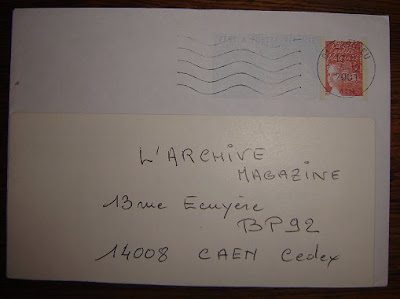 2001
L'ARCHIVE
MAGAZINE
13 rue Ecuyère
BP92
14008 CAEN Cedex